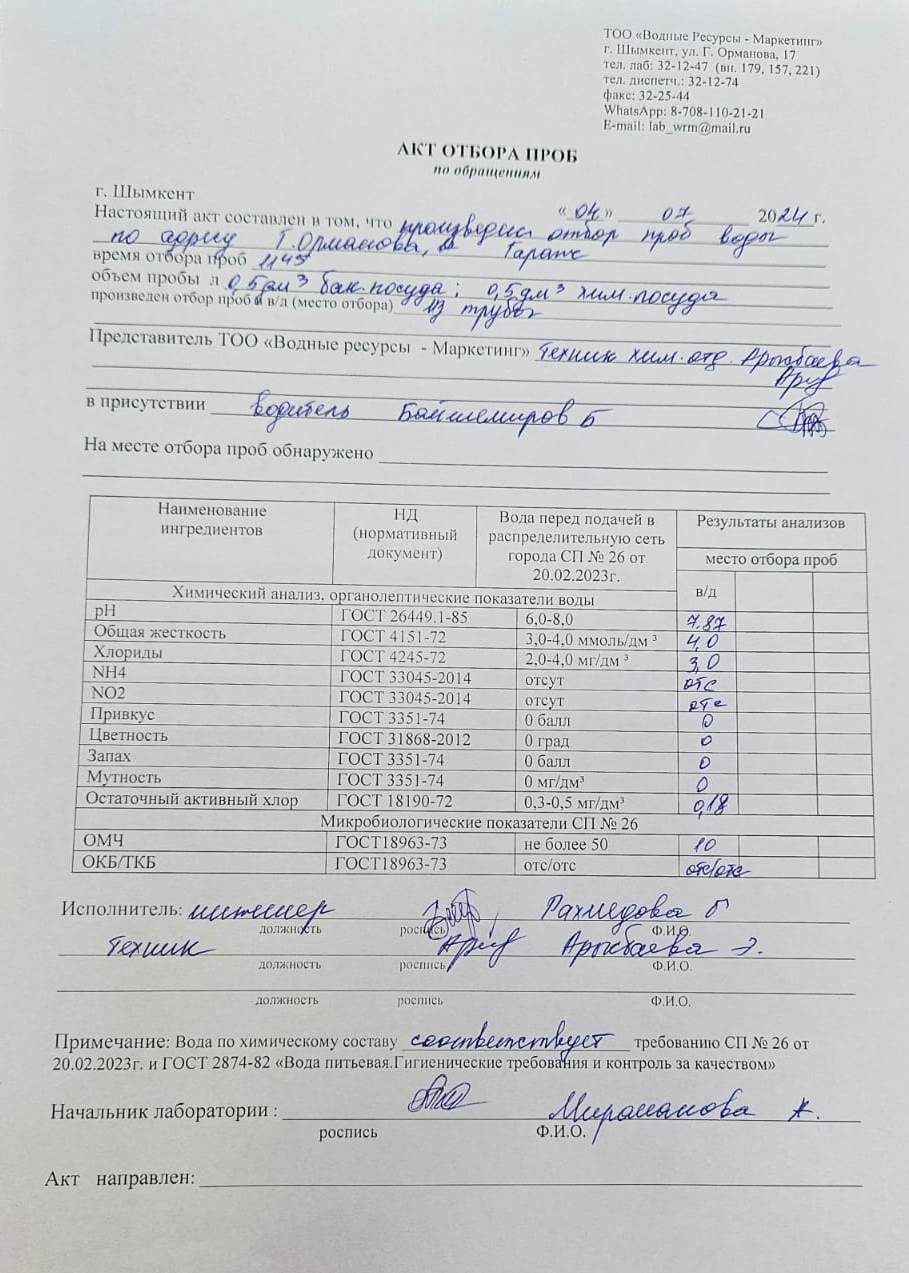 ТОО «Водные Ресурсы - Маркетинг»
г. Шымкент, ул. Г. Орманова, 17
тел. лаб: 32-12-47 (вн. 179, 157, 221)
тел. диспетч.: 32-12-74
факс: 32-25-44
WhatsApp: 8-708-110-21-21
E-mail: lab_wrm@mail.ru
АКТ ОТБОРА ПРОБ
по обращениям
г. Шымкент
« 04 » 07 2024 г.
Настоящий акт составлен в том, что произведен отбор проб воды
по адресу Г.Орманова, Гараж
время отбора проб 1145
объем пробы л 0,5дм³ бак.посуда; 0,5дм³ хим.посуда
произведен отбор проб в/д (место отбора) из трубы
Представитель ТОО «Водные ресурсы - Маркетинг» Техник хим. отд. Арыкбаева
в присутствии водитель Байшемиров Б
На месте отбора проб обнаружено
Наименование ингредиентов НД (нормативный документ) Вода перед подачей в распределительную сеть города СП № 26 от 20.02.2023г. Результаты анализов
место отбора проб
в/д
Химический анализ, органолептические показатели воды
pH ГОСТ 26449.1-85 6,0-8,0 7.87
Общая жесткость ГОСТ 4151-72 3,0-4,0 ммоль/дм ³ 4,0
Хлориды ГОСТ 4245-72 2,0-4,0 мг/дм ³ 3,0
NH4 ГОСТ 33045-2014 отсут отс
NO2 ГОСТ 33045-2014 отсут отс
Привкус ГОСТ 3351-74 0 балл 0
Цветность ГОСТ 31868-2012 0 град 0
Запах ГОСТ 3351-74 0 балл 0
Мутность ГОСТ 3351-74 0 мг/дм³ 0
Остаточный активный хлор ГОСТ 18190-72 0,3-0,5 мг/дм³ 0,18
Микробиологические показатели СП № 26
ОМЧ ГОСТ18963-73 не более 50 10
ОКБ/ТКБ ГОСТ18963-73 отс/отс отс/отс
Исполнитель: инженер Рахмедова Г
должность роспись Ф.И.О.
Техник Арыкбаева Э.
должность роспись Ф.И.О.
должность роспись Ф.И.О.
Примечание: Вода по химическому составу соответствует требованию СП № 26 от
20.02.2023г. и ГОСТ 2874-82 «Вода питьевая.Гигиенические требования и контроль за качеством»
Начальник лаборатории : Мираманова А.
роспись Ф.И.О.
Акт направлен: